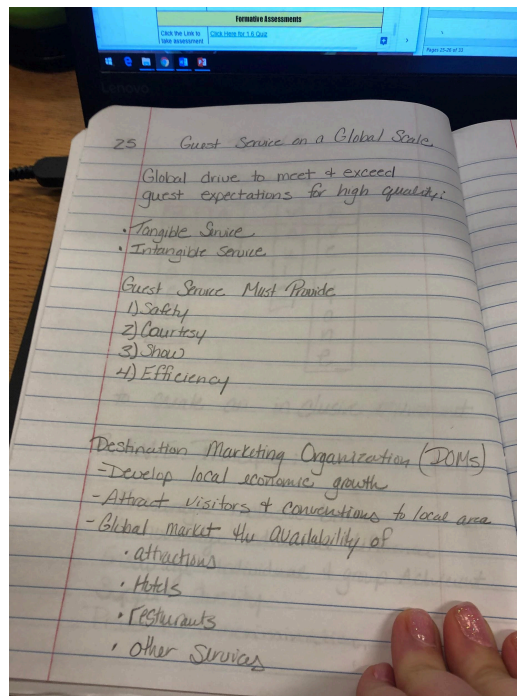 Formative Assessments
Click the Link to
take assessment
Click Here for 1.6 Quiz
Pages 25-26 of 33
Lenovo
25
Guest Service on a Global Scale
Global drive to meet & exceed
guest expectations for high quality:
• Tangible Service
• Intangible Service
Guest Service Must Provide
1) Safety
2) Courtesy
3) Show
4) Efficiency
Destination Marketing Organization (DOMs)
- Develop local economic growth
- Attract visitors & conventions to local area
- Global market thu availability of
• attractions
• Hotels
• resturants
• other Services